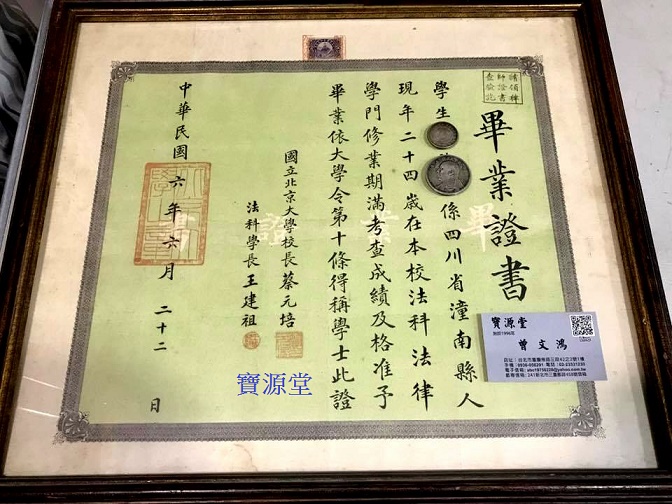 畢業證書
學生
係四川省潼南縣人
現年二十四歲在本校法科法律
學門修業期滿考查成績及格准予
畢業依大學令第十條得稱學士此證
國立北京大學校長蔡元培
法科學長王建祖
中華民國六年六月二十二日
畢業證書
寶源堂
曾文鴻
寶源堂